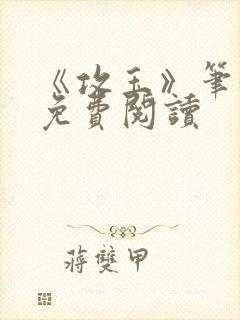 《攻玉》筆
免費閱讀
蔣雙甲